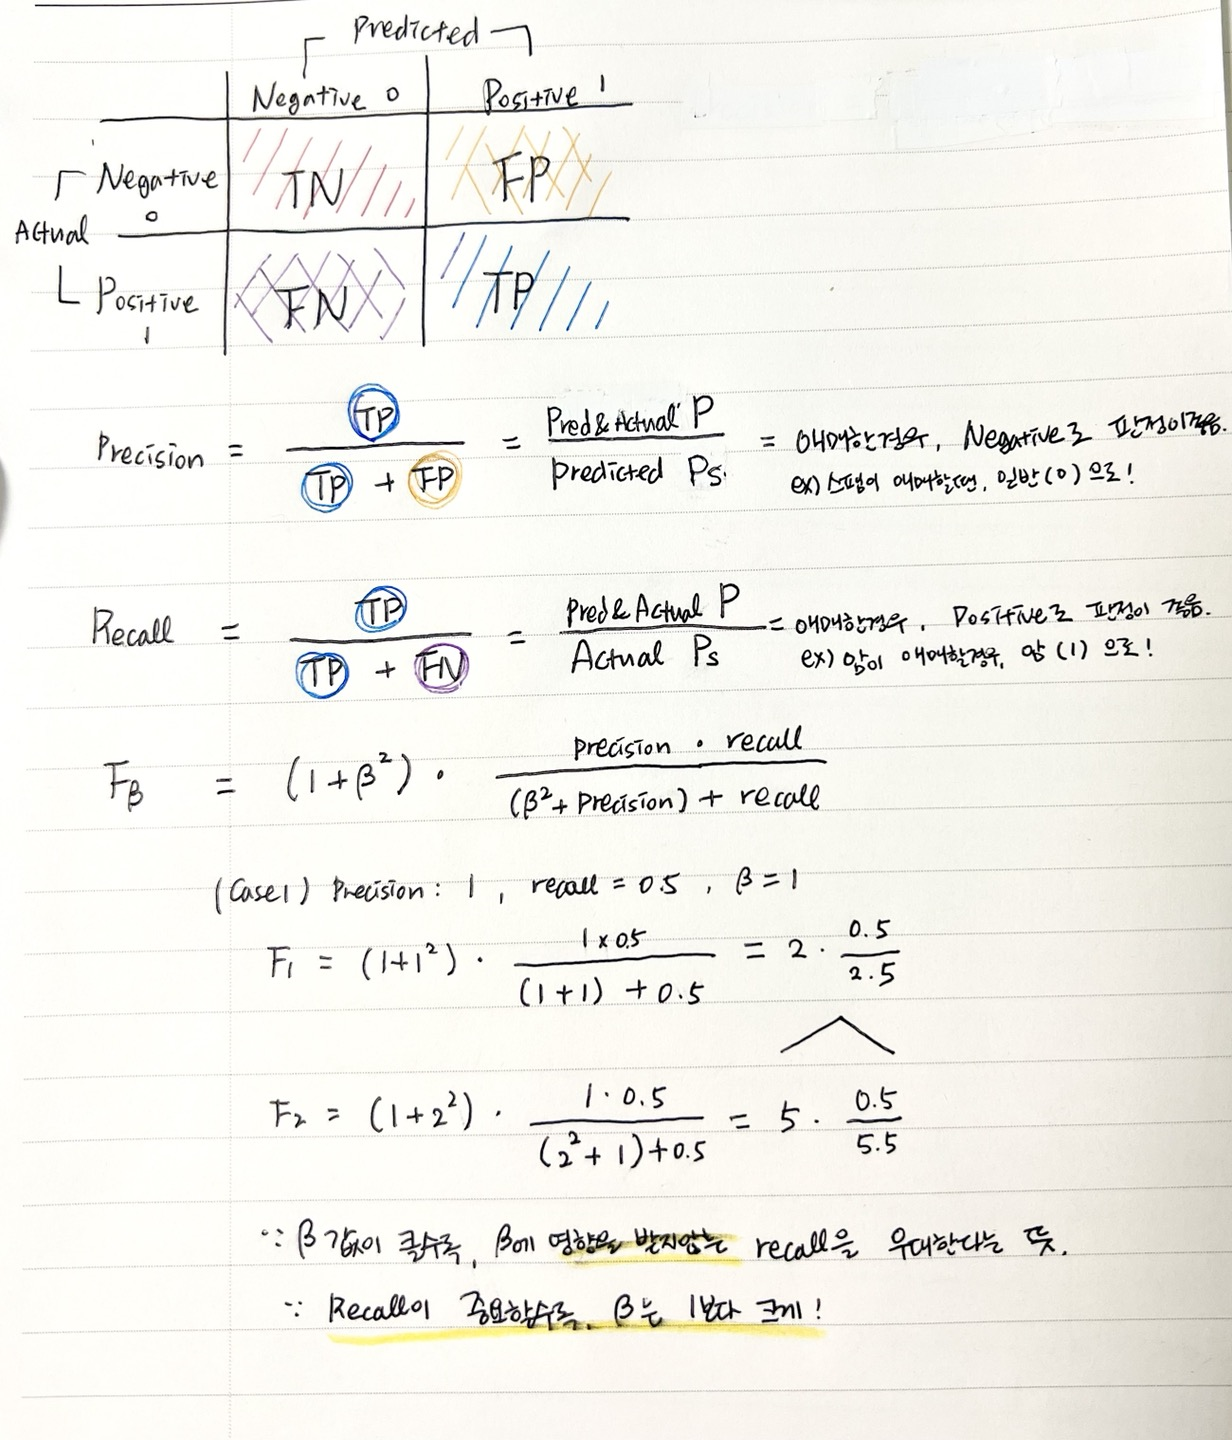 Predicted
Negative 0 Positive 1
Negative 0 TN FP
Actual
Positive 1 FN TP
Precision = TP / (TP + FP) = Pred & Actual P / predicted Ps. = 애매한경우, Negative로 판정이 겪음.
ex) 스팸이 애매할땐, 일반(0)으로!
Recall = TP / (TP + FN) = Pred & Actual P / Actual Ps = 애매한경우, Positive로 판정이 겪음.
ex) 암이 애매할경우, 암(1)으로!
Fβ = (1+β²) · precision · recall / (β² + Precision) + recall
(Case1) Precision: 1, recall = 0.5, β = 1
F₁ = (1+1²) · 1 x 0.5 / (1+1) + 0.5 = 2 · 0.5 / 2.5
F₂ = (1+2²) · 1 · 0.5 / (2² + 1) + 0.5 = 5 · 0.5 / 5.5
∵ β 값이 클수록, β에 영향을 받지않는 recall을 우대한다는 뜻.
∵ Recall이 중요할수록, β는 1보다 크게!